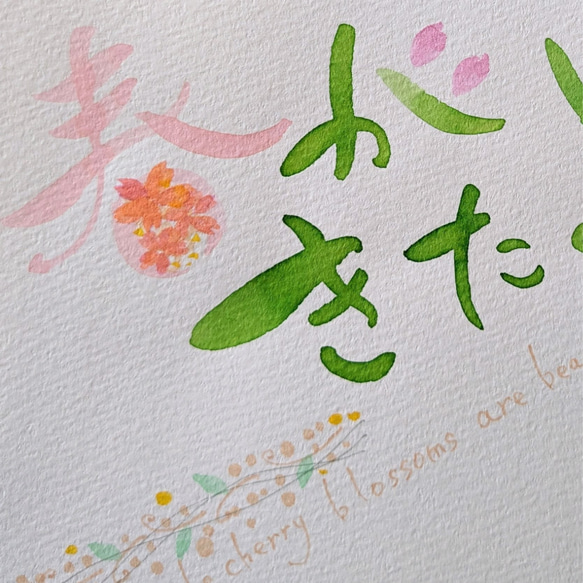 春が
きた
cherry blossoms are